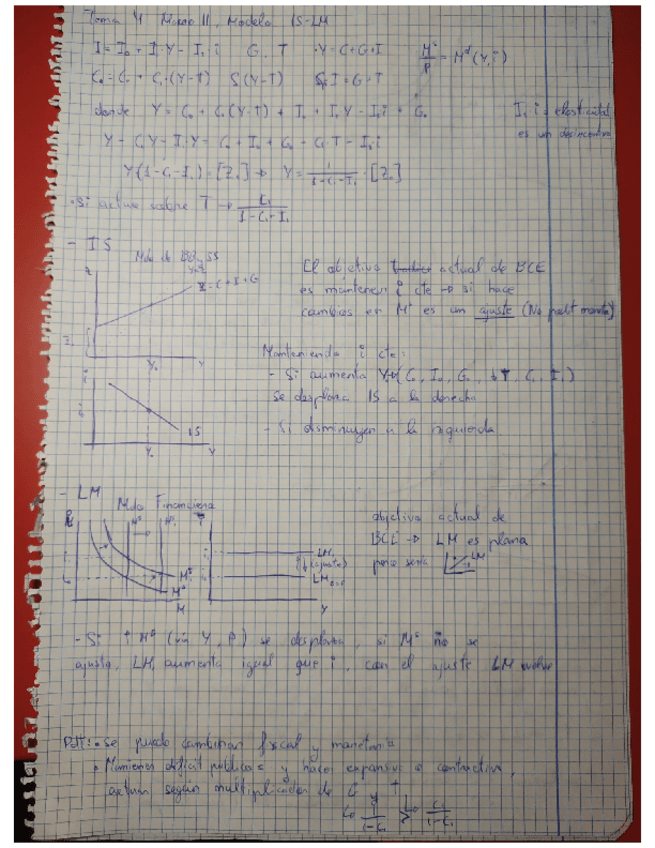 Tema 4 Macro II, Modelo IS-LM
I = I₀ + I₁Y - I₂ i    G, T    Y = C+G+I    Mˢ/P = Mᵈ(Y,i)
C = C₀ + C₁(Y-T)    S(Y-T)    I+G
donde Y = C₀ + C₁(Y-T) + I₀ + I₁Y - I₂i + G₀    I₂ i = elasticidad
es un desincentivo
Y - C₁Y - I₁Y = C₀ + I₀ + G₀ - C₁T - I₂i
Y(1-C₁-I₁) = [Z₀] → Y = 1/(1-C₁-I₁) · [Z₀]
· Si actua sobre T → C₁/(1-C₁-I₁)
- IS
Mdo de B y SS
Y=Z
Z = C+I+G
Z
Y₀    Y
i
IS
Y₀    Y
El objetivo actual de BCE
es mantener i cte → si hace
cambios en Mˢ es un ajuste (No polít moneta)
Manteniendo i cte:
- Si aumenta (C₀, I₀, G₀, ↓T, C₁, I₁)
se desplaza IS a la derecha
- Si disminuyen a la izquierda
- LM
Mdo Financiero
Mˢ    Mˢ
Mᵈ
Mᵈ
M
i
LM₁
(ajuste)
LM
Y
objetivo actual de
BCE → LM es plana
pero seria    LM
- Si ↑ Mᵈ (vía Y, P) se desplaza, si Mˢ no se
ajusta, LM aumenta igual que i, con el ajuste LM vuelve
Polít: · se puede combinar fiscal y monetaria
· Mantener déficit público = y hacer expansiva o contractiva,
actuar según multiplicador de G T
1/(1-C₁) > C₁/(1-C₁)